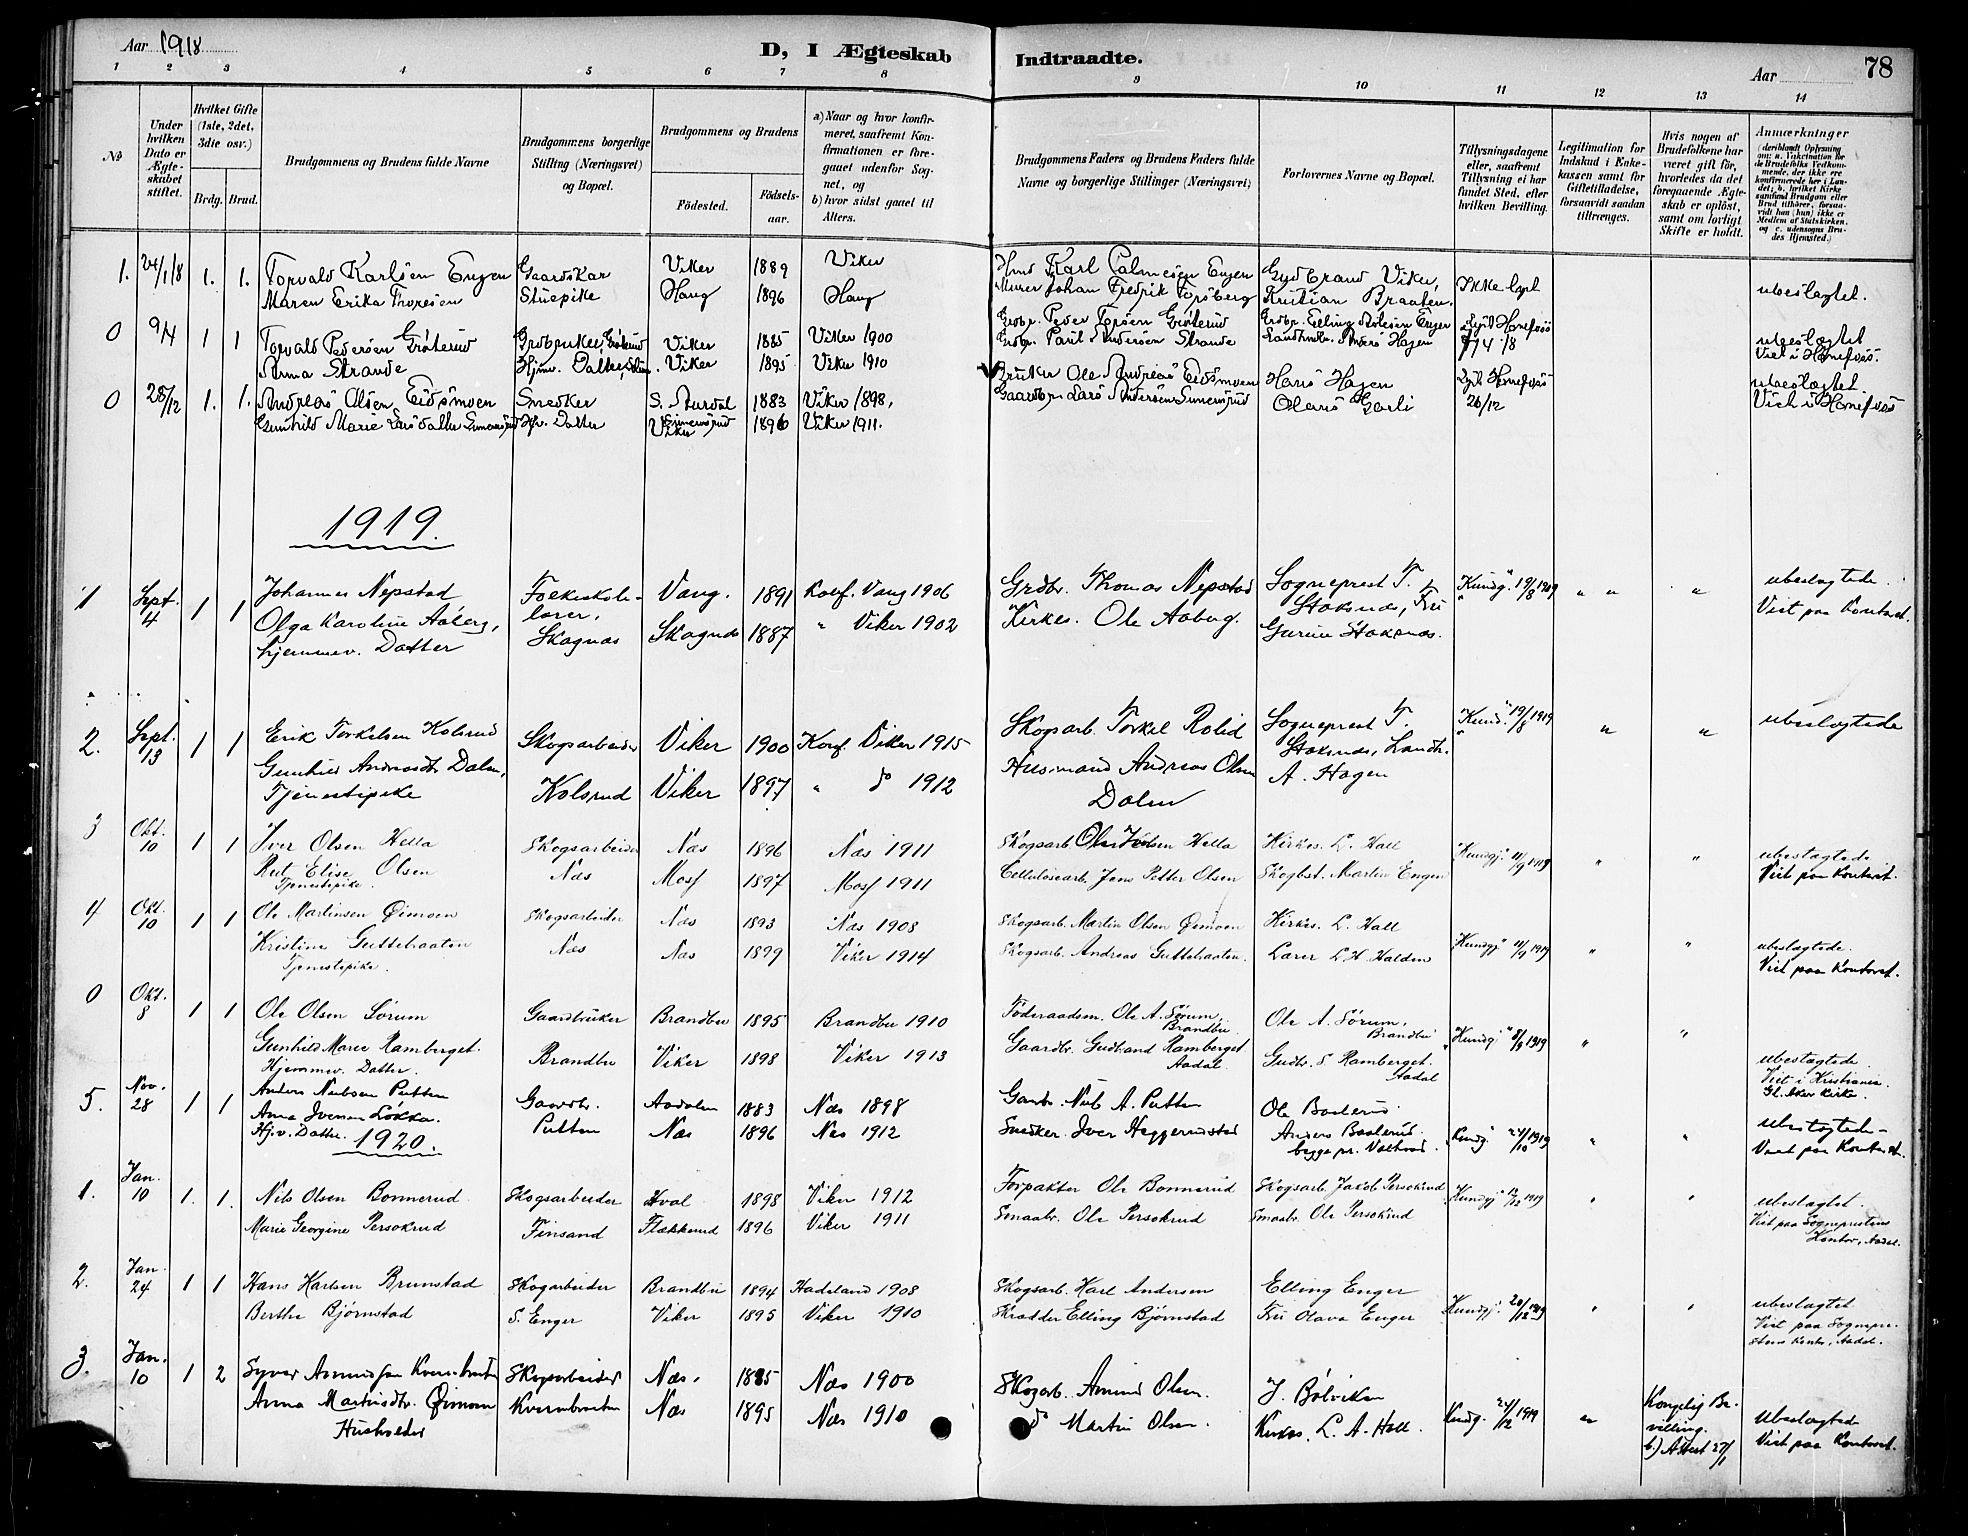 Aar 1918
D, I Ægteskab
Indtraadte.
Aar
78
1 2 3 4 5 6 7 8 9 10 11 12 13 14
No
Under hvilken Dato er Ægteskabet stiftet.
Hvilket Gifte (1ste, 2det, 3die osv.)
Brdg. Brud.
Brudgommens og Brudens fulde Navne
Brudgommens borgerlige Stilling (Næringsvei) og Bopæl.
Brudgommens og Brudens
Fødested.
Fødselsaar.
a) Naar og hvor konfirmeret, saafremt Konfirmationen er foregaaet udenfor Sognet, og
b) hvor sidst gaaet til Alters.
Brudgommens Faders og Brudens Faders fulde Navne og borgerlige Stillinger (Næringsvei)
Forlovernes Navne og Bopæl.
Tillysningsdagene eller, saafremt Tillysning ei har fundet Sted, efter hvilken Bevilling.
Legitimation for Indskud i Enkekassen samt for Giftetilladelse, forsaavidt saadan tiltrænges.
Hvis nogen af Brudefolkene har været gift før, hvorledes da det foregaaende Ægteskab er opløst, samt om lovligt Skifte er holdt.
Anmærkninger (deriblandt Oplysning om: a. Vakcination for de Brudefolks Vedkommende, der ikke ere konfirmerede her i Landet; b. hvilket Kirkesamfund Brudgom eller Brud tilhører, forsaavidt han (hun) ikke er Medlem af Statskirken, og c. udensogns Brudes Hjemsted.)
1. 24/1 18 1. 1. Torvald Karlsen Engen Gaardskar Viker 1889 Viker Karl Palmesen Engen Gudbrand Viker, Ikke lyst ubeslægtet.
Maren Erika Thoresen Stuepike Haug 1896 Haug Murer Johan Fredrik Forsberg Kristian Braaten.
0 9/4 1 1 Torvald Pedersen Grøterud Grdbruker, Grøterud Viker 1885 Viker 1900 Grdbr. Peder Torsen Grøterud Grdbr. Elling Enger Lyst Hønefoss 7/4 18 ubeslægtet
Anna Strande Hjmv. Datter, Viker 1895 Viker 1910 Grdbr. Paul Andersen Strande Landh. Hagen Viet i Hønefoss.
0 28/12 1. 1. Andreas Olsen Eidsmoen Snedker S. Aurdal 1883 Viker 1898, Bruker Ole Andreas Eidsmoen Hans Hagen Lyst Hønefoss 26/12 ubeslægtet.
Gunhild Marie Larsdatter Simensrud Hjv. Datter Simensrud Viker 1896 Viker 1911. Gaardbr. Lars Andersen Simensrud Olaus Garli Viet i Hønefoss
1919.
1 Sept. 4 1 1 Johannes Nepstad Folkeskolelærer, Vang. 1891 Konf. Vang 1906 Grdbr. Thomas Nepstad Sogneprest T. Stoksnæs, Fru "Kundg." 19/8 1919 " " " ubeslægtede.
Olga Karoline Aaberg, Skagnæs Skagnæs 1887 " Viker 1902 Kirkes. Ole Aaberg. Gurine Stoksnæs. Viet paa Kontoret.
hjemmev. Datter
2. Sept. 13 1 1 Erik Torkelsen Kolsrud Skogsarbeider Viker 1900 Konf. Viker 1915 Skogsarb. Torkel Rolid Sogneprest T. Stoksnæs, Landh. "Kund." 19/8 1919 " " ubeslægtede
Gunhild Andreasdtr. Dalen, Kolsrud Viker 1897 " do 1912 Husmand Andreas Olsen Dalen A. Hagen
Tjenestepike
3 Okt. 10 1 1 Iver Olsen Hella Skogsarbeider Næs 1896 Næs 1911 Skogsarb. Ole Iversen Hella Kirkes. L. Hall "Kundgj." 11/9 1919 " " ubeslægtede
Rut Elise Olsen Næs Moss 1897 Moss 1911 Cellulosearb. Jens Petter Olsen Skogbst. Martin Engen Viet paa Kontoret.
Tjenestepike.
4 Okt. 10 1 1 Ole Martinsen Øimoen Skogsarbeider Næs 1893 Næs 1908 Skogsarb. Martin Olsen Øimoen Kirkes. L. Hall "Kundgj" 11/9 1919 " " ubeslægtede.
Kristine Guttebraaten Næs Næs 1899 Viker 1914 Skogsarb. Andreas Guttebraaten. Lærer L. H. Halden Viet paa Kontoret.
Tjenestepike.
0 Okt. 8 1 1 Ole Olsen Sørum Gaardbruker Brandbu 1895 Brandbu 1910 Føderaadsm. Ole A. Sørum, Brandbu. Ole A. Sørum, Brandbu "Kundgj" 8/9 1919 " "
Gunhild Marie Ramberget. Brandbu Viker 1898 Viker 1913 Gaardbr. Gudbrand Ramberget Aadal. Gudbr. S. Ramberget. Aadal ubeslægtede.
Hjemmev. Datter. Viet i Kristiania. Gl. Aker Kirke.
5. Nov. 28 1 1 Anders Nielsen Putten Gaardbr. Aadalen 1883 Næs 1898 Gaardbr. Niels A. Putten Ole Baalerud.
Anna Iversen Løkka. Putten Næs 1896 Næs 1912 Snedker. Iver Heggerudstad Anders Baalerud. begge pr. "Kundg" 24/10 1919 " " ubeslægtede.
Hj.v. Datter. Viet paa Kontoret.
1920.
1. Jan. 10 1. 1. Nils Olsen Bonnerud. Skogsarbeider Hval 1898 Viker 1912 Forpakter Ole Bonnerud Skogsarb. Jakob Persokrud "Kundgj" 12/12 1919 " " ubeslægtet.
Marie Georgine Persokrud Finsand Flæskerud 1896 Viker 1911 Smaabr. Ole Persokrud Smaabr. Ole Persokrud Viet paa Sogneprestens Kontor, Aadal.
2. Jan. 24 1 1 Hans Karlsen Brunstad Skogarbeider Brandbu 1894 Hadeland 1908 Skogsarb. Karl Andersen Elling Enger "Kundgj." 20/12 1919 " " ubeslægtet
Berthe Bjørnstad S. Enger Viker 1895 Viker 1910 Skrædder Elling Bjørnstad Fru Olava Enger Viet paa Sogneprestens Kontor, Aadal.
3. Jan. 10 1 2 Syver Amundsen Kvernbraaten Skogsarbeider Næs. 1885 Næs 1900 Skogarb. Amund Olsen. J. Bølviken
Anna Martinsdtr. Øimoen Kvernbraaten Næs 1895 Næs 1910 do Martin Olsen. Kirkes. L. A. Hall. Kundg. 24/12 1919 " Kongelig Bevilling. b.) Attest 27/1 Ubeslægtede
Husholder Viet paa Kontoret.